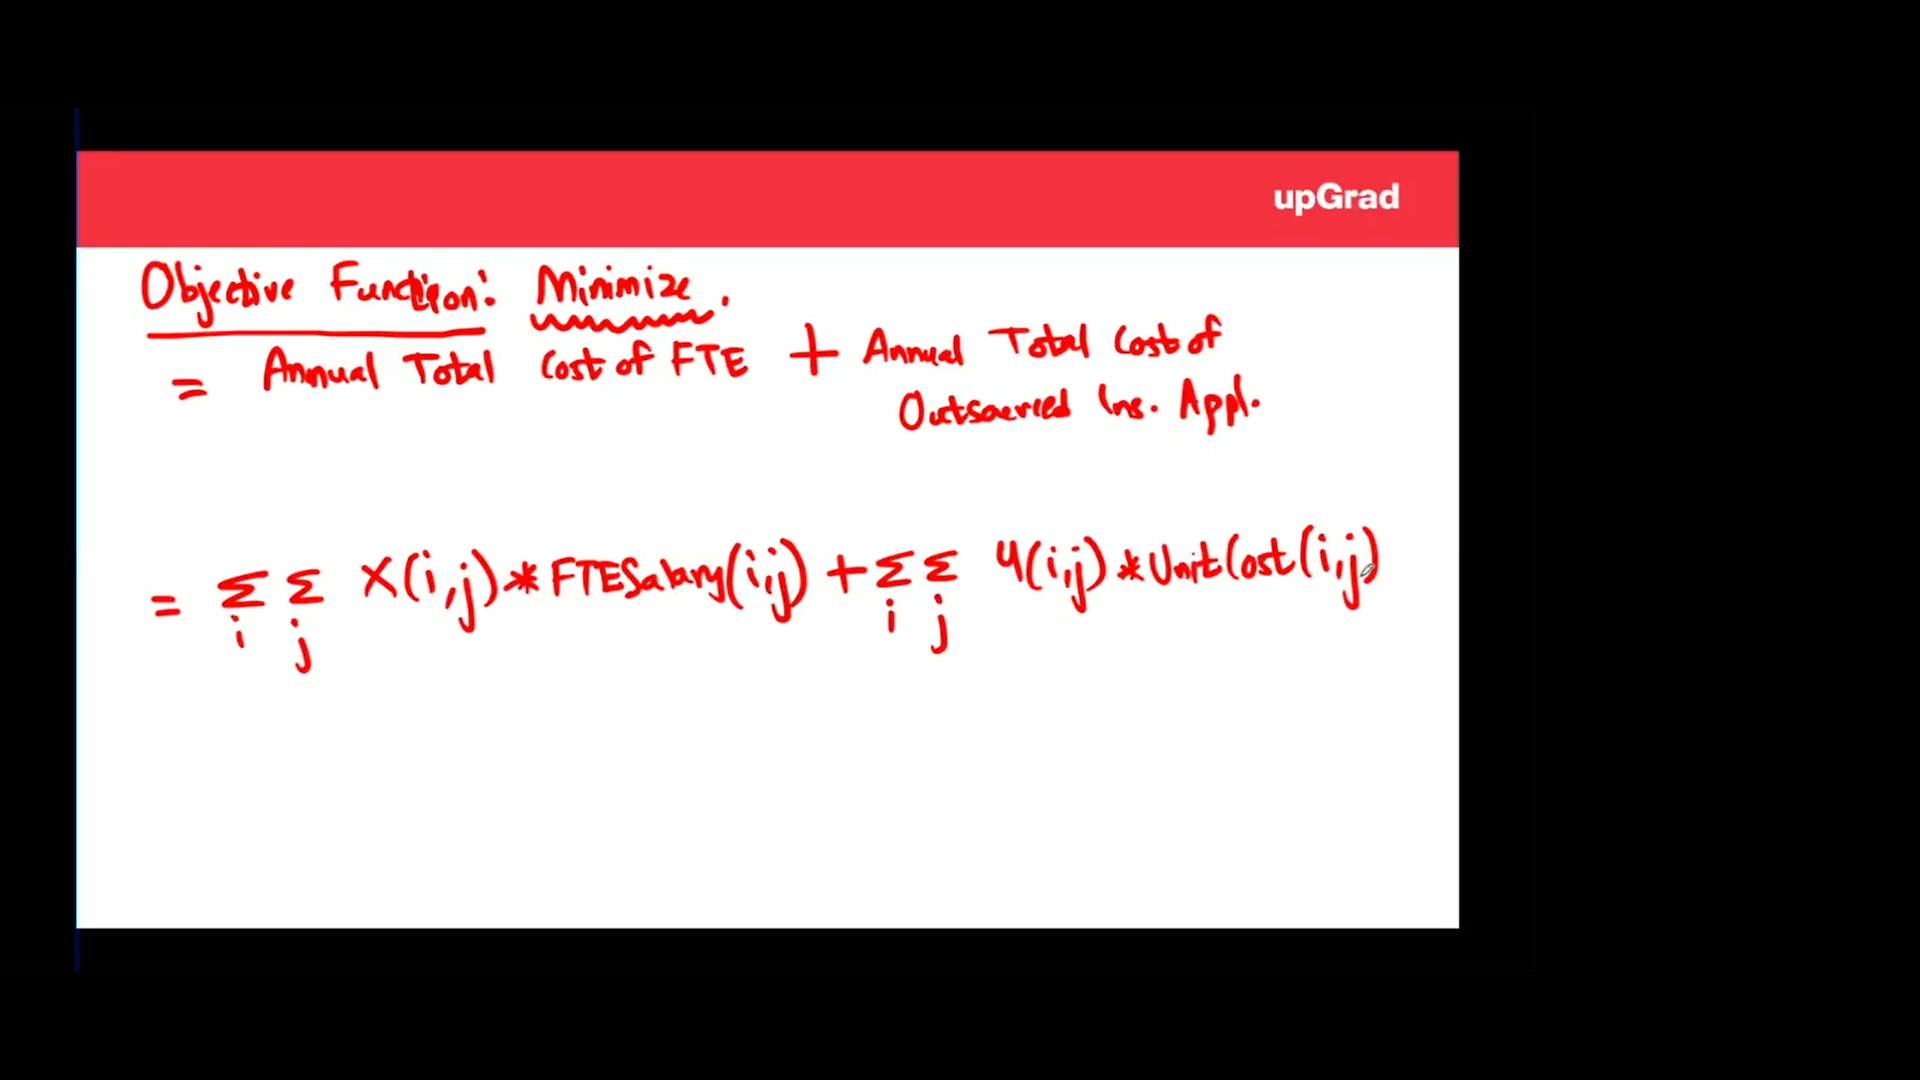 upGrad
Objective Function: Minimize.
= Annual Total Cost of FTE + Annual Total Cost of
Outsourced Ins. Appl.
= Σ Σ X(i,j) * FTESalary(i,j) + Σ Σ Y(i,j) * UnitCost(i,j)
i j i j